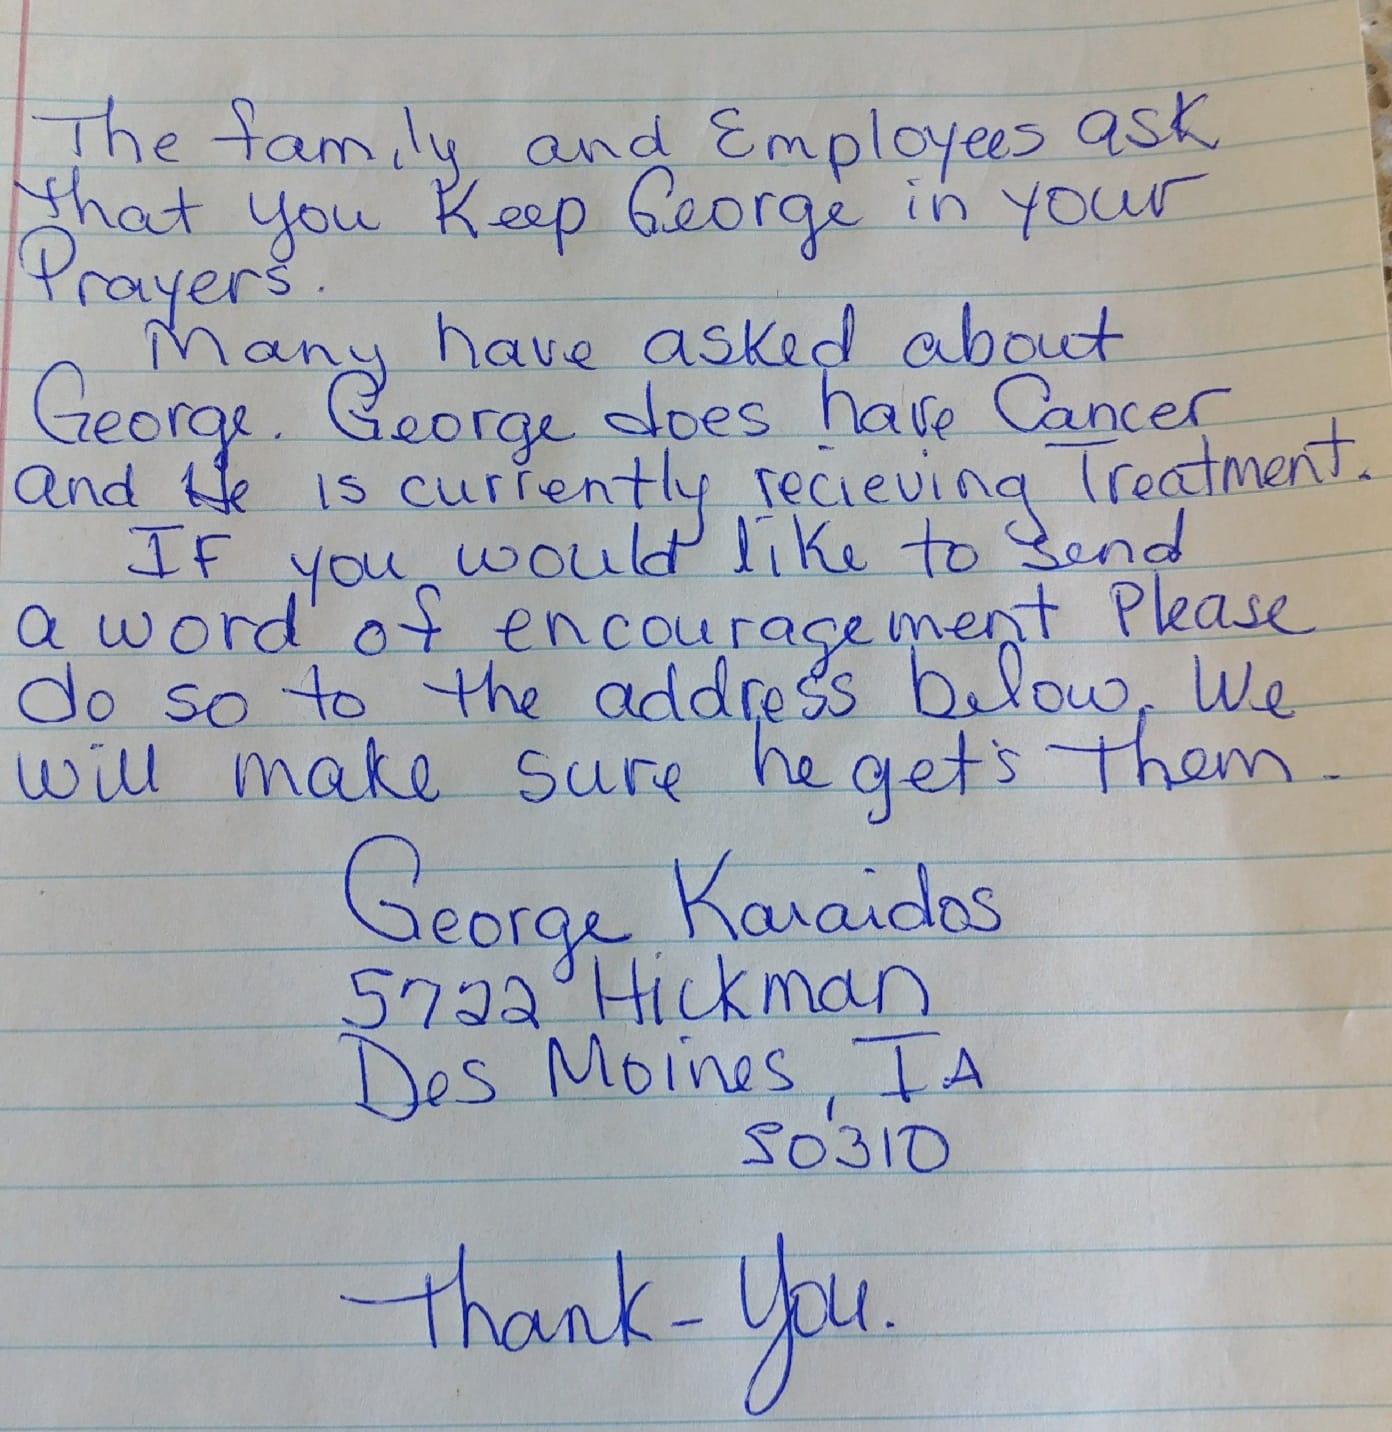 The family and Employees ask
that you Keep George in your
Prayers.
Many have asked about
George. George does have Cancer
and He is currently recieving Treatment.
IF you would like to Send
a word of encouragement Please
do so to the address below. We
will make sure he get's them.
George Karaidos
5722 Hickman
Des Moines, IA
50310
Thank-You.